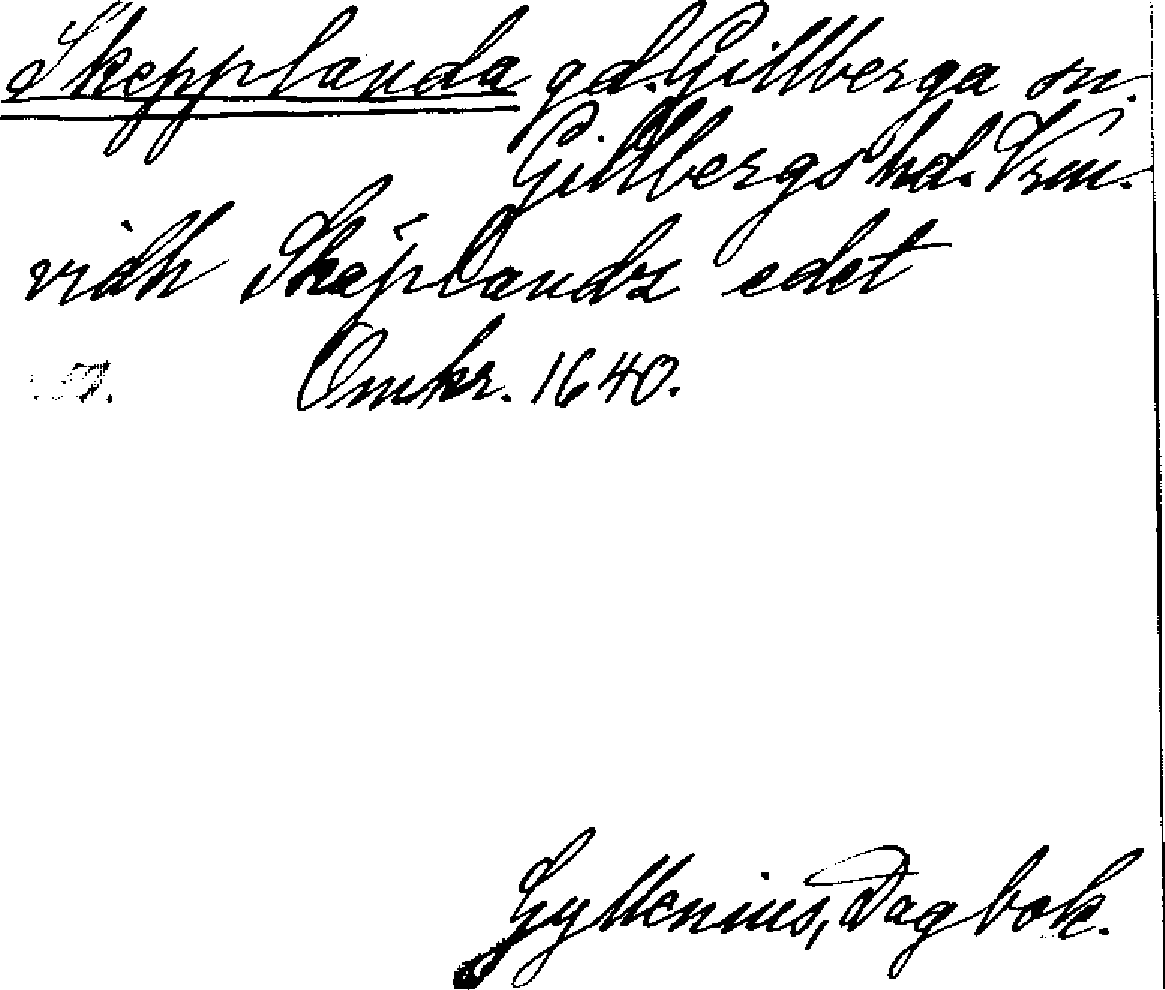 Skepplanda gd. Gillberga sn.
Gillbergs hd. Vrm.
vidh Sképlandz edet
Omkr. 1640.
Gyllenius, Dagbok.